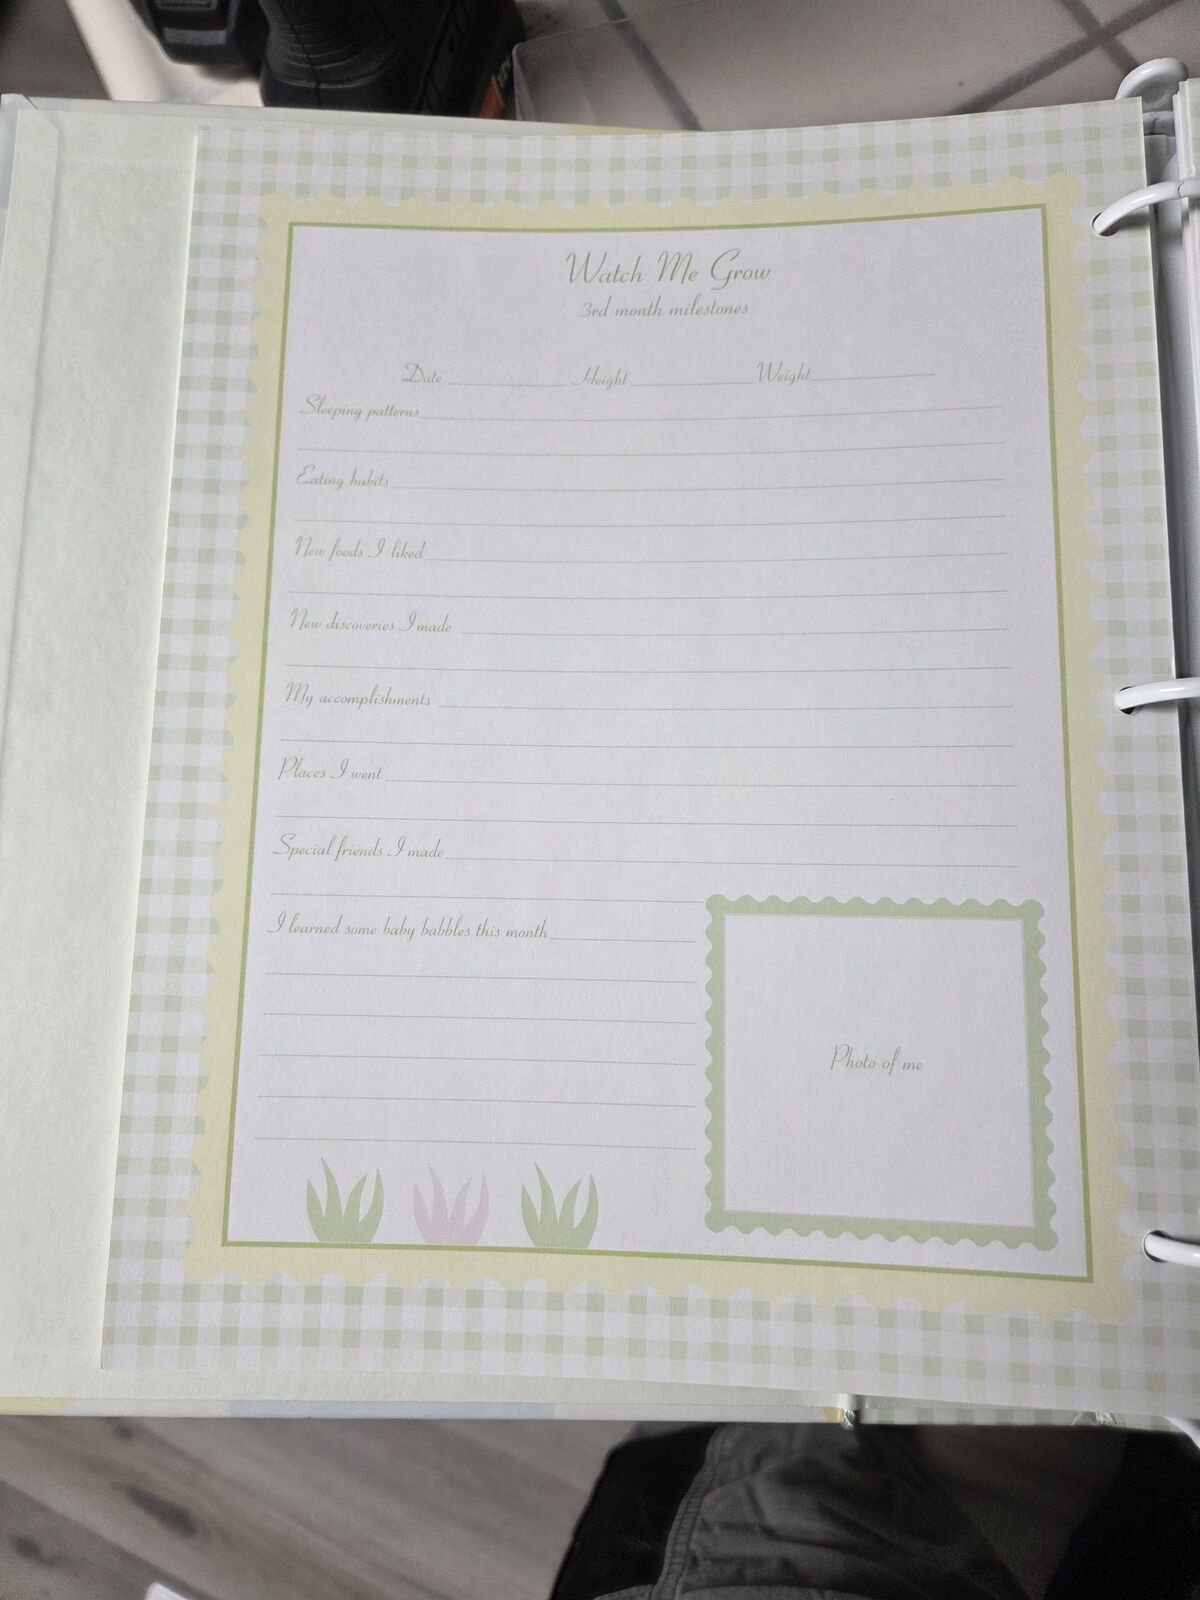 Watch Me Grow
3rd month milestones
Date Height Weight
Sleeping patterns
Eating habits
New foods I liked
New discoveries I made
My accomplishments
Places I went
Special friends I made
I learned some baby babbles this month
Photo of me